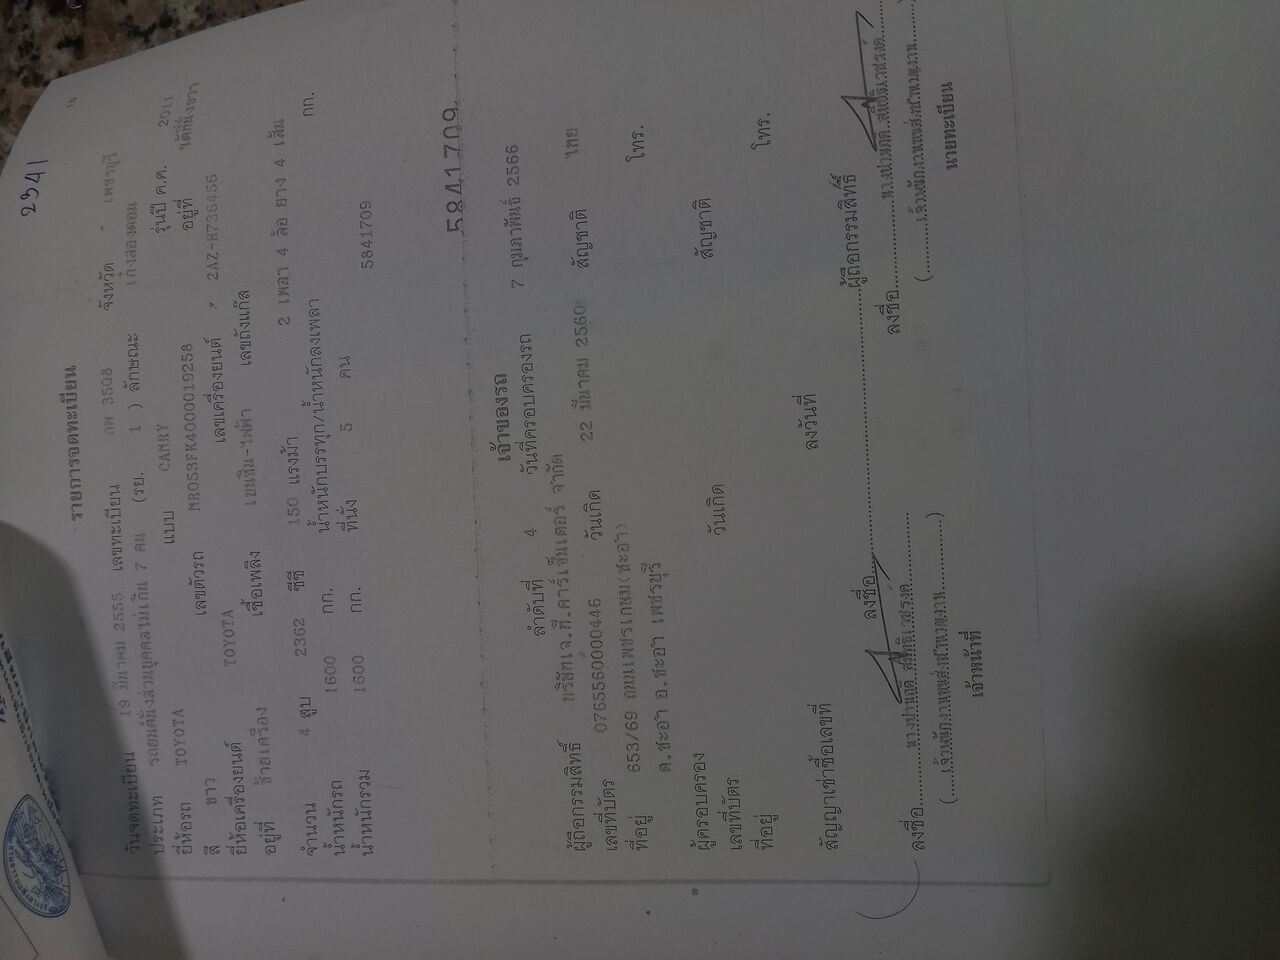 2341
14
รายการจดทะเบียน
วันจดทะเบียน 19 มีนาคม 2555 เลขทะเบียน กพ 3508 จังหวัด เพชรบุรี
ประเภท รถยนต์นั่งส่วนบุคคลไม่เกิน 7 คน (รย. 1 ) ลักษณะ เก๋งสองตอน
ยี่ห้อรถ TOYOTA แบบ CAMRY รุ่นปี ค.ศ. 2011
สี ขาว เลขตัวรถ MR053FK4000019258 อยู่ที่
ยี่ห้อเครื่องยนต์ TOYOTA เลขเครื่องยนต์ 2AZ-H736456
อยู่ที่ ซ้ายเครื่อง เชื้อเพลิง เบนซิน-ไฟฟ้า เลขถังแก๊ส
จำนวน 4 สูบ 2362 ซีซี 150 แรงม้า 2 เพลา 4 ล้อ ยาง 4 เส้น
น้ำหนักรถ 1600 กก. น้ำหนักบรรทุก/น้ำหนักลงเพลา กก.
น้ำหนักรวม 1600 กก. ที่นั่ง 5 คน 5841709
5841709
เจ้าของรถ
ลำดับที่ 4 วันที่ครอบครองรถ 7 กุมภาพันธ์ 2566
ผู้ถือกรรมสิทธิ์ บริษัทเจ.ที.คาร์เซ็นเตอร์ จำกัด
เลขที่บัตร 0765560000446 วันเกิด 22 มีนาคม 2560 สัญชาติ ไทย
ที่อยู่ 653/69 ถนนเพชรเกษม(ชะอำ) โทร.
ต.ชะอำ อ.ชะอำ เพชรบุรี
ผู้ครอบครอง
เลขที่บัตร วันเกิด สัญชาติ
ที่อยู่ โทร.
สัญญาเช่าซื้อเลขที่ ลงวันที่
ลงชื่อ ผู้ถือกรรมสิทธิ์
ลงชื่อ ลงชื่อ
(เจ้าพนักงานขนส่งชำนาญงาน) (เจ้าพนักงานขนส่งชำนาญงาน)
เจ้าหน้าที่ นายทะเบียน